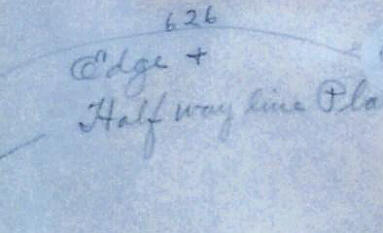 626
Edge +
Half way line Pla